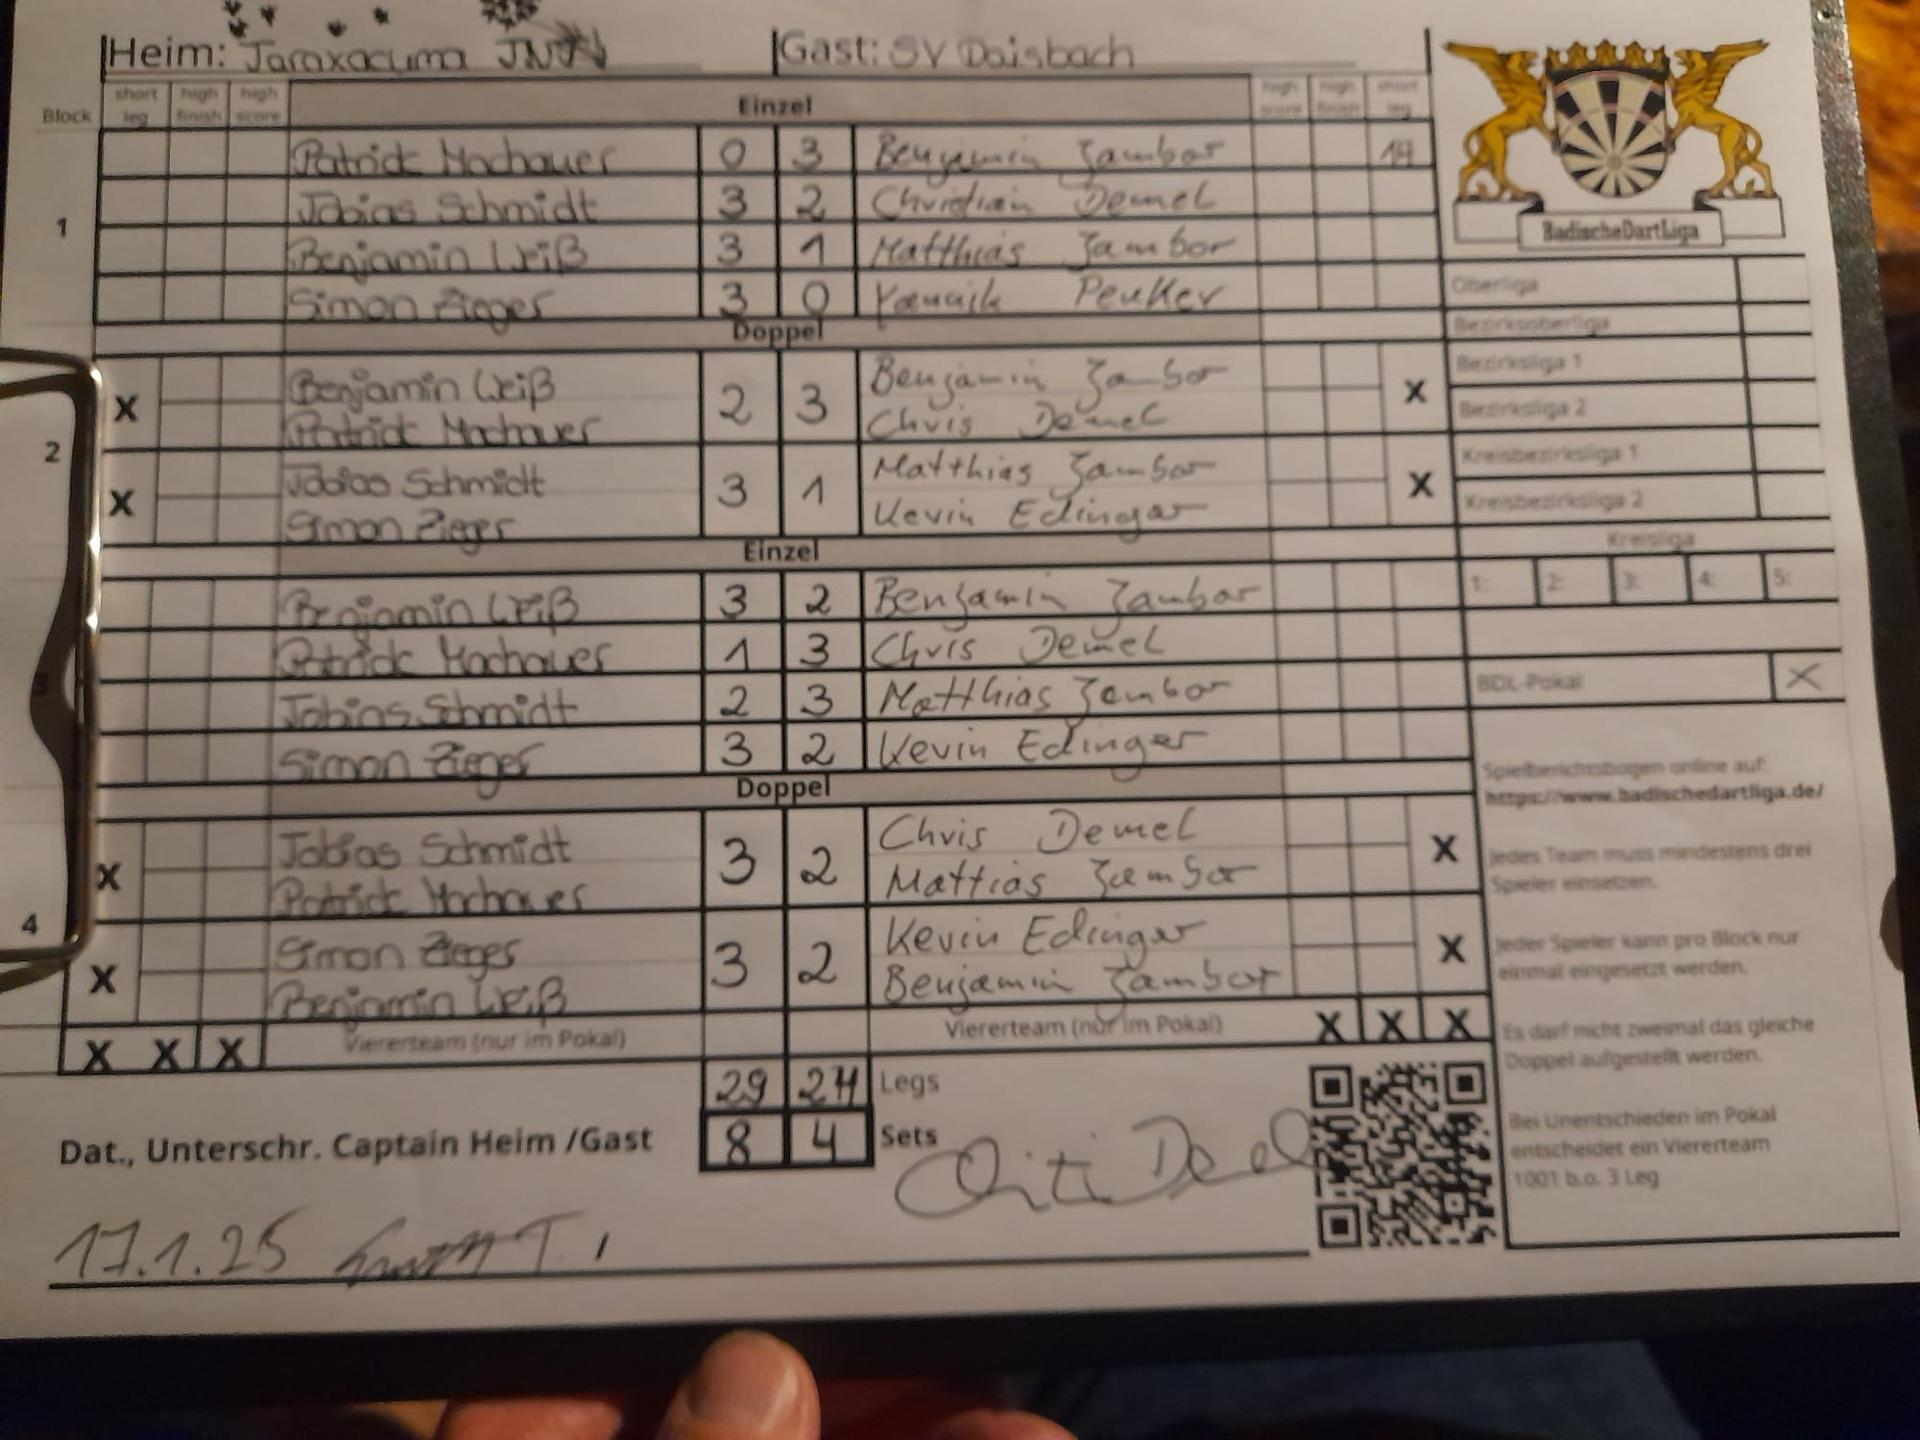 Heim: Taraxacuma Gast: SV Daisbach
Block short leg high finish high score Einzel high score high finish short leg
Patrick Machauer 0 3 Benjamin Zambor
1 Tobias Schmidt 3 2 Christian Demel
Benjamin Weiß 3 1 Matthias Zambor
Simon Zieger 3 0 Yannik Peuker
Doppel
Benjamin Weiß Benjamin Zambor
X 2 3 X
Patrick Machauer Chris Demel
2
Tobias Schmidt Matthias Zambor
X 3 1 X
Simon Zieger Kevin Edinger
Einzel
Benjamin Weiß 3 2 Benjamin Zambor
Patrick Machauer 1 3 Chris Demel
Tobias Schmidt 2 3 Matthias Zambor
Simon Zieger 3 2 Kevin Edinger
Doppel
Tobias Schmidt Chris Demel
X 3 2 X
Patrick Machauer Mattias Zambor
4
Simon Zieger Kevin Edinger
X 3 2 X
Benjamin Weiß Benjamin Zambor
X X X Viererteam (nur im Pokal) Viererteam (nur im Pokal) X X X
29 24 Legs
Dat., Unterschr. Captain Heim /Gast 8 4 Sets
17.1.25
BadischeDartLiga
Oberliga
Bezirksoberliga
Bezirksliga 1
Bezirksliga 2
Kreisbezirksliga 1
Kreisbezirksliga 2
Kreisliga
1: 2: 3: 4: 5:
BDL-Pokal X
Spielberichtsbogen online auf:
https://www.badischedartliga.de/
Jedes Team muss mindestens drei
Spieler einsetzen.
Jeder Spieler kann pro Block nur
einmal eingesetzt werden.
Es darf nicht zweimal das gleiche
Doppel aufgestellt werden.
Bei Unentschieden im Pokal
entscheidet ein Viererteam
1001 b.o. 3 Leg